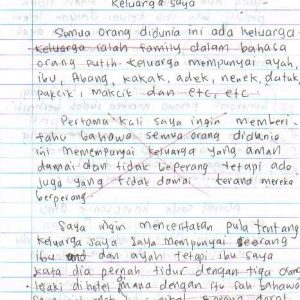 Keluarga saya
Semua orang didunia ini ada keluarga
keluarga ialah family dalam bahasa
orang putih keluarga mempunyai ayah,
ibu, Abang, kakak, adek, nenek, datuk,
pakcik, makcik dan etc, etc
Pertama kali saya ingin memberi-
tahu bahawa semua orang didunia
ini mempunyai keluarga yang aman
damai dan tidak beperang tetapi ado
juga yang tidak damai kerana mereka
berperang
Saya ingin menceritakan pula tentang
keluarga saya. Saya mempunyai seorang
ibu dan ayah tetapi ibu saya
kata dia pernah tidur dengan tiga orang
lelaki dihotel mana dengan itu sah bahawa